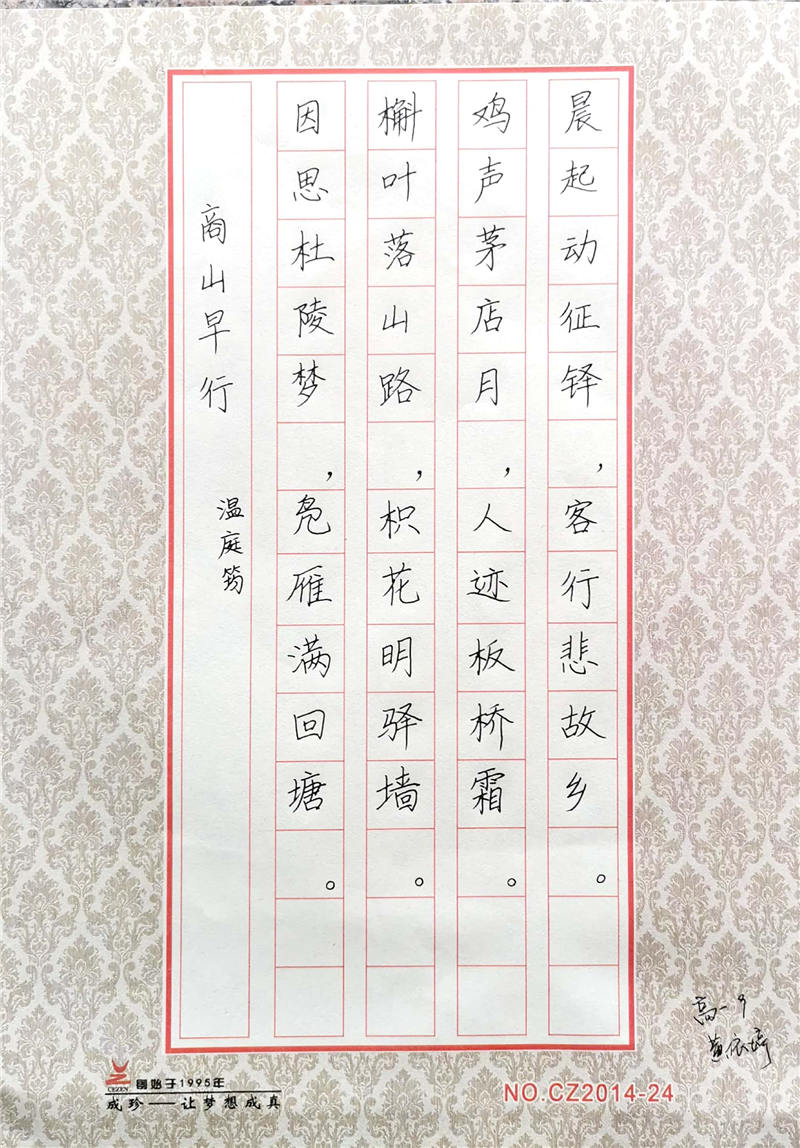 晨起动征铎，客行悲故乡。
鸡声茅店月，人迹板桥霜。
槲叶落山路，枳花明驿墙。
因思杜陵梦，凫雁满回塘。
商山早行
温庭筠
高一9
黄依琦
CEZEN
創始于1995年
成珍——让梦想成真
NO.CZ2014-24